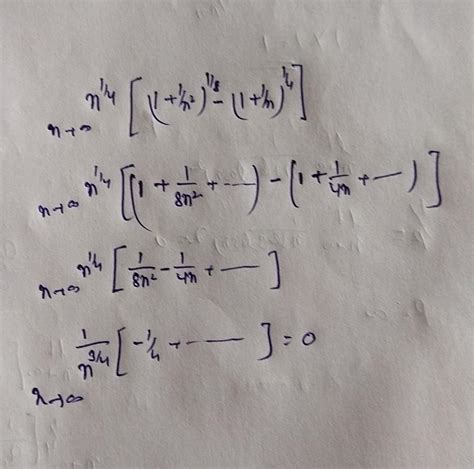 n^{1/4} [ (1 + 1/n²)^{1/8} - (1 + 1/n)^{1/4} ]
n→∞
n^{1/4} [ (1 + 1/8n² + ---) - (1 + 1/4n + ---) ]
n→∞
n^{1/4} [ 1/8n² - 1/4n + --- ]
n→∞
1/n^{3/4} [ -1/4 + --- ] = 0
n→∞